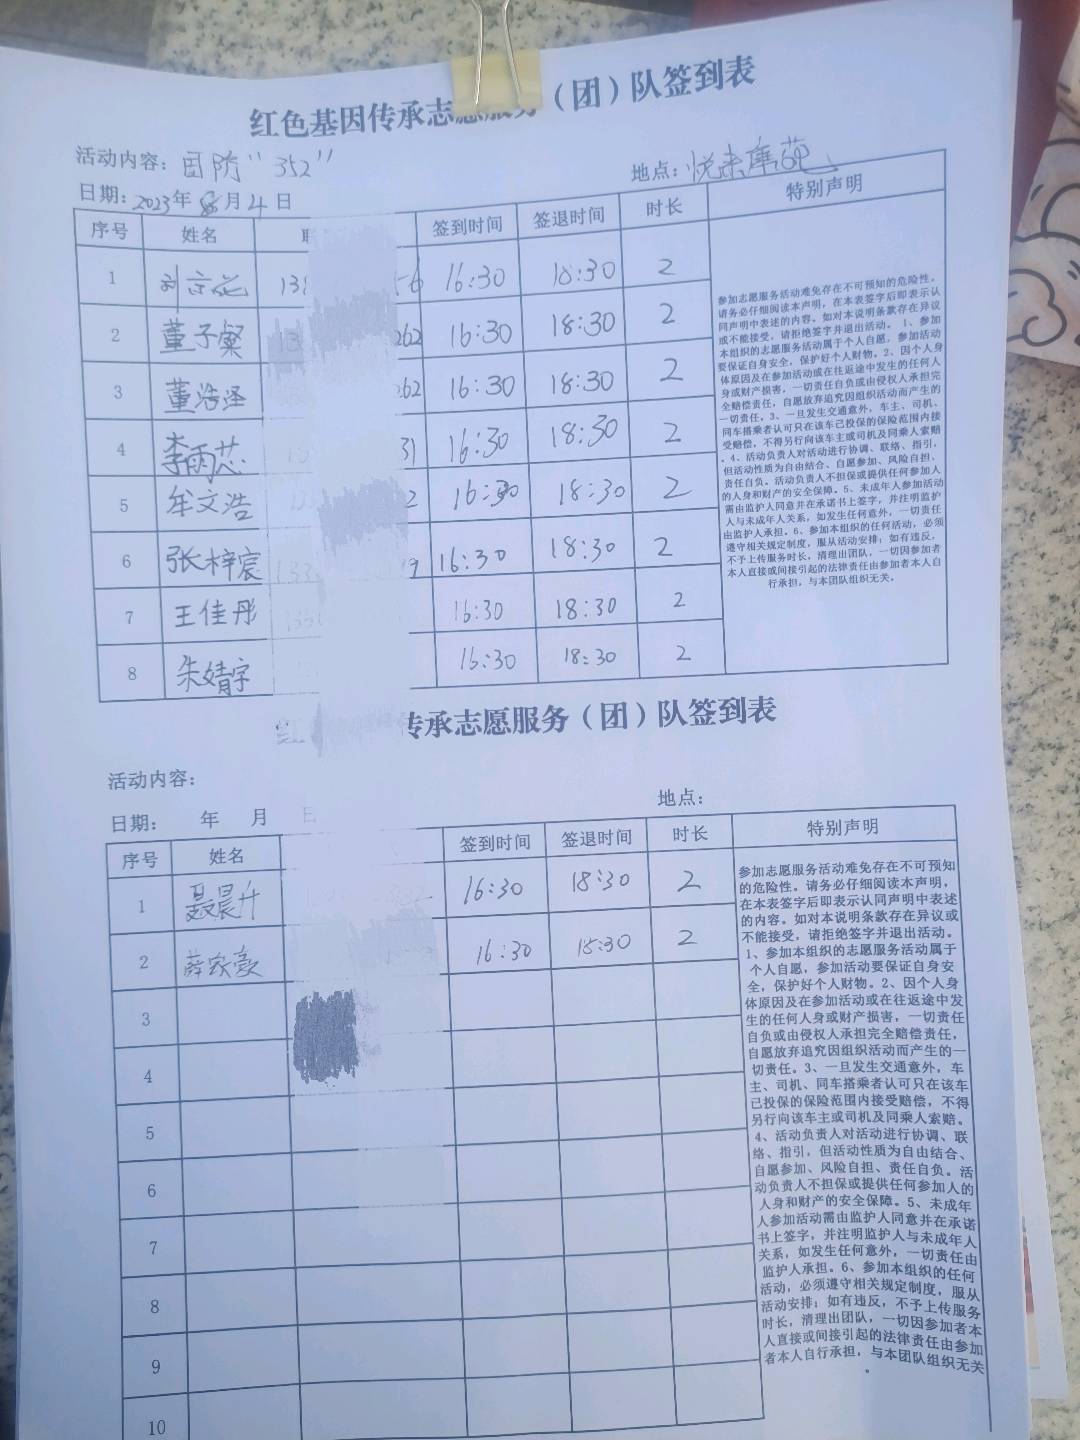 红色基因传承志愿服务（团）队签到表
活动内容：团防"352"
地点：悦来
日期：2023年8月4日
序号 姓名 签到时间 签退时间 时长 特别声明
1 刘 16:30 18:30 2
2 董子粲 262 16:30 18:30 2
3 董浩泽 262 16:30 18:30 2
4 李雨芯 31 16:30 18:30 2
5 牟文浩 2 16:30 18:30 2
6 张梓宸 133 9 16:30 18:30 2
7 王佳彤 16:30 18:30 2
8 朱婧宇 16:30 18:30 2
参加志愿服务活动难免存在不可预知的危险性。
请务必仔细阅读本声明，在本表签字后即表示认
同声明中表述的内容。如对本说明条款存在异议
或不能接受，请拒绝签字并退出活动。 1、参加
本组织的志愿服务活动属于个人自愿，参加活动
要保证自身安全，保护好个人财物。2、因个人身
体原因及在参加活动或在往返途中发生的任何人
身或财产损害，一切责任自负或由侵权人承担完
全赔偿责任，自愿放弃追究因组织活动而产生的
一切责任。3、一旦发生交通意外，车主、司机、
同车搭乘者认可只在该车已投保的保险范围内接
受赔偿，不得另行向该车主或司机及同乘人索赔
。4、活动负责人对活动进行协调、联络、指引，
但活动性质为自由结合、自愿参加、风险自担、
责任自负。活动负责人不担保或提供任何参加人
的人身和财产的安全保障。5、未成年人参加活动
需由监护人同意并在承诺书上签字，并注明监护
人与未成年人关系，如发生任何意外，一切责任
由监护人承担。6、参加本组织的任何活动，必须
遵守相关规定制度，服从活动安排；如有违反，
不予上传服务时长，清理出团队，一切因参加者
本人直接或间接引起的法律责任由参加者本人自
行承担，与本团队组织无关。
红 传承志愿服务（团）队签到表
活动内容：
地点：
日期： 年 月 日
序号 姓名 签到时间 签退时间 时长 特别声明
1 聂晨升 16:30 18:30 2
2 薛 豪 16:30 18:30 2
3
4
5
6
7
8
9
10
参加志愿服务活动难免存在不可预知
的危险性。请务必仔细阅读本声明，
在本表签字后即表示认同声明中表述
的内容。如对本说明条款存在异议或
不能接受，请拒绝签字并退出活动。
1、参加本组织的志愿服务活动属于
个人自愿，参加活动要保证自身安
全，保护好个人财物。2、因个人身
体原因及在参加活动或在往返途中发
生的任何人身或财产损害，一切责任
自负或由侵权人承担完全赔偿责任，
自愿放弃追究因组织活动而产生的一
切责任。3、一旦发生交通意外，车
主、司机、同车搭乘者认可只在该车
已投保的保险范围内接受赔偿，不得
另行向该车主或司机及同乘人索赔。
4、活动负责人对活动进行协调、联
络、指引，但活动性质为自由结合、
自愿参加、风险自担、责任自负。活
动负责人不担保或提供任何参加人的
人身和财产的安全保障。5、未成年
人参加活动需由监护人同意并在承诺
书上签字，并注明监护人与未成年人
关系，如发生任何意外，一切责任由
监护人承担。6、参加本组织的任何
活动，必须遵守相关规定制度，服从
活动安排；如有违反，不予上传服务
时长，清理出团队，一切因参加者本
人直接或间接引起的法律责任由参加
者本人自行承担，与本团队组织无关
。